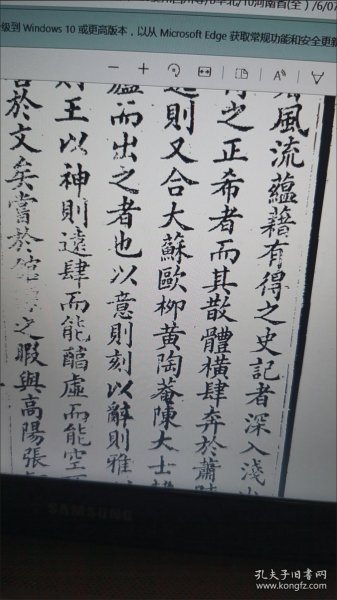 级到 Windows 10 或更高版本，以从 Microsoft Edge 获取常规功能和安全更新
风流蘊藉有得之史記者深入淺
之正希者而其散體橫肆奔於蕭
則又合大蘇歐柳黃陶菴陳大士
而出之者也以意則刻以辭則雅
王以神則遠肆而能醞虛而能空
於文矣嘗於
之暇與高陽張
SAMSUNG
孔夫子旧书网
www.kongfz.com